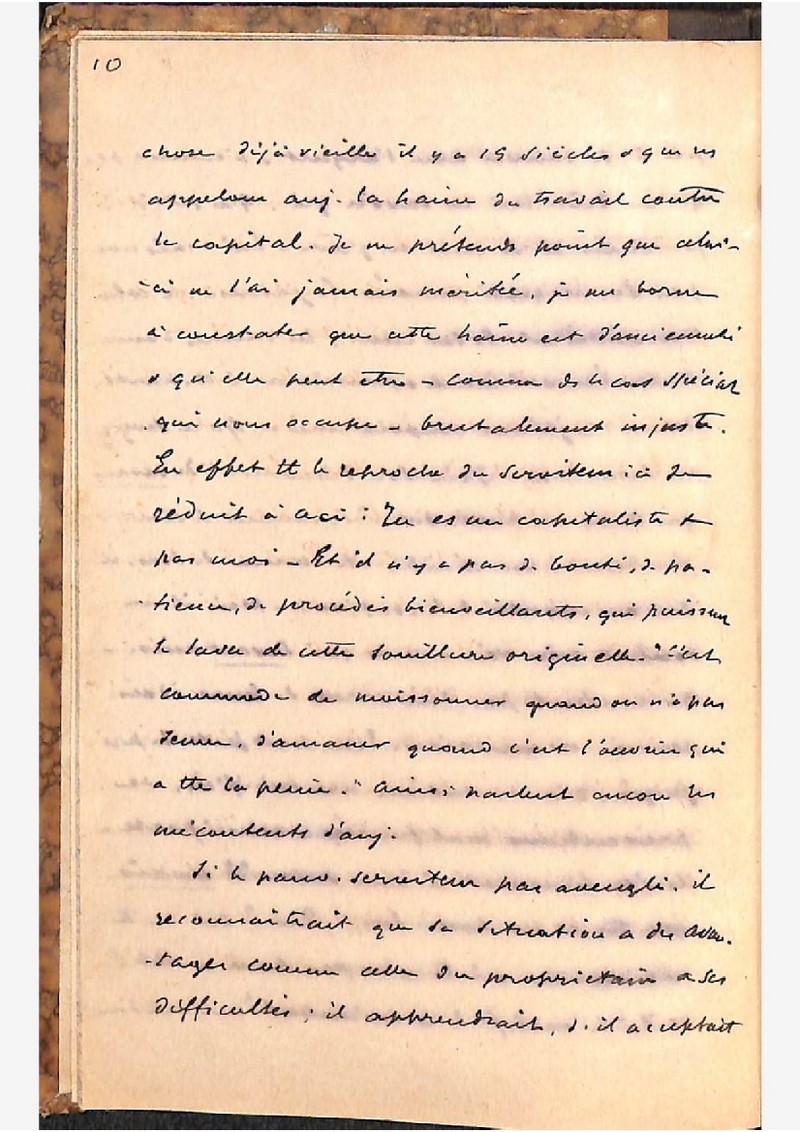 10
chose déjà vieille il y a 19 siècles & que ns
appelons auj. la haine du travail contre
le capital. Je ne prétends point que celui-
-ci ne l'ai jamais méritée, je me borne
à constater que cette haine est d'ancienneté
& qu'elle peut être – comme ds le cas spécial
qui nous occupe – brutalement injuste.
En effet tt le reproche du serviteur ici se
réduit à ceci : Tu es un capitaliste &
pas moi – Et il n'y a pas de bonté, de pa-
-tience, de procédés bienveillants, qui puissent
te laver de cette souillure originelle. "C'est
commode de moissonner quand on n'a pas
semé, d'amasser quand c'est l'ouvrier qui
a tte la peine." Ainsi parlent encore les
mécontents d'auj.
Si le pauv. serviteur pas aveuglé. il
reconnaîtrait que sa situation a des avan-
-tages comme celle du propriétaire a ses
difficultés ; il apprendrait, s'il acceptait